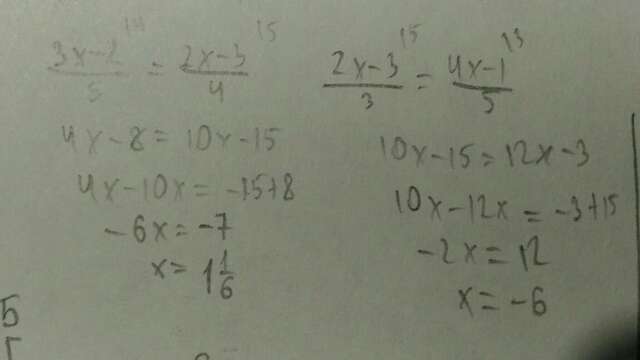 3x-2/5 = 2x-3/4
4x-8 = 10x-15
4x-10x = -15+8
-6x = -7
x = 1 1/6
2x-3/3 = 4x-1/5
10x-15 = 12x-3
10x-12x = -3+15
-2x = 12
x = -6
Б